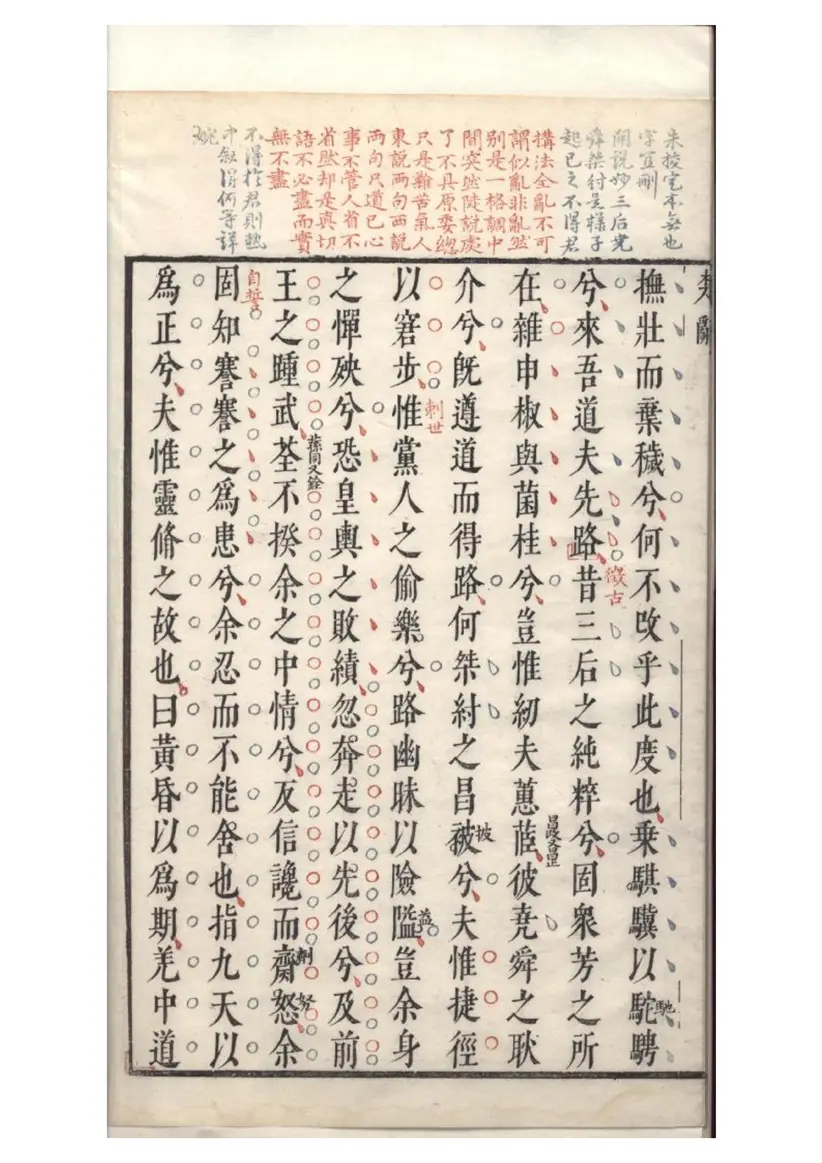 字宜刪
開說妙三后堯
舜桀紂是樣子
起已之不得君
搆法全亂不可
謂似亂非亂然
別是一格調中
間突然陡說
了不具原委總
只是難苦氣人
東說兩句西說
兩句只道已心
事不管人省不
省然却是真切
語不必盡而實
無不盡
不得於君則熱
中叙得何等詳
婉
撫壯而棄穢兮何不改乎此度也乘騏驥以駝馳騁
兮來吾道夫先路昔三后之純粹兮固衆芳之所
徵古
在雜申椒與菌桂兮豈惟紉夫蕙茝彼堯舜之耿
介兮旣遵道而得路何桀紂之昌被披兮夫惟捷徑
刺世
以窘步惟黨人之偷樂兮路幽昧以險隘豈余身
之憚殃兮恐皇輿之敗績忽奔走以先後兮及前
王之踵武荃蓀同又銓不揆余之中情兮反信讒而齌劑怒努余
自誓
固知謇謇之爲患兮余忍而不能舍也指九天以
爲正兮夫惟靈脩之故也曰黃昏以爲期羌中道